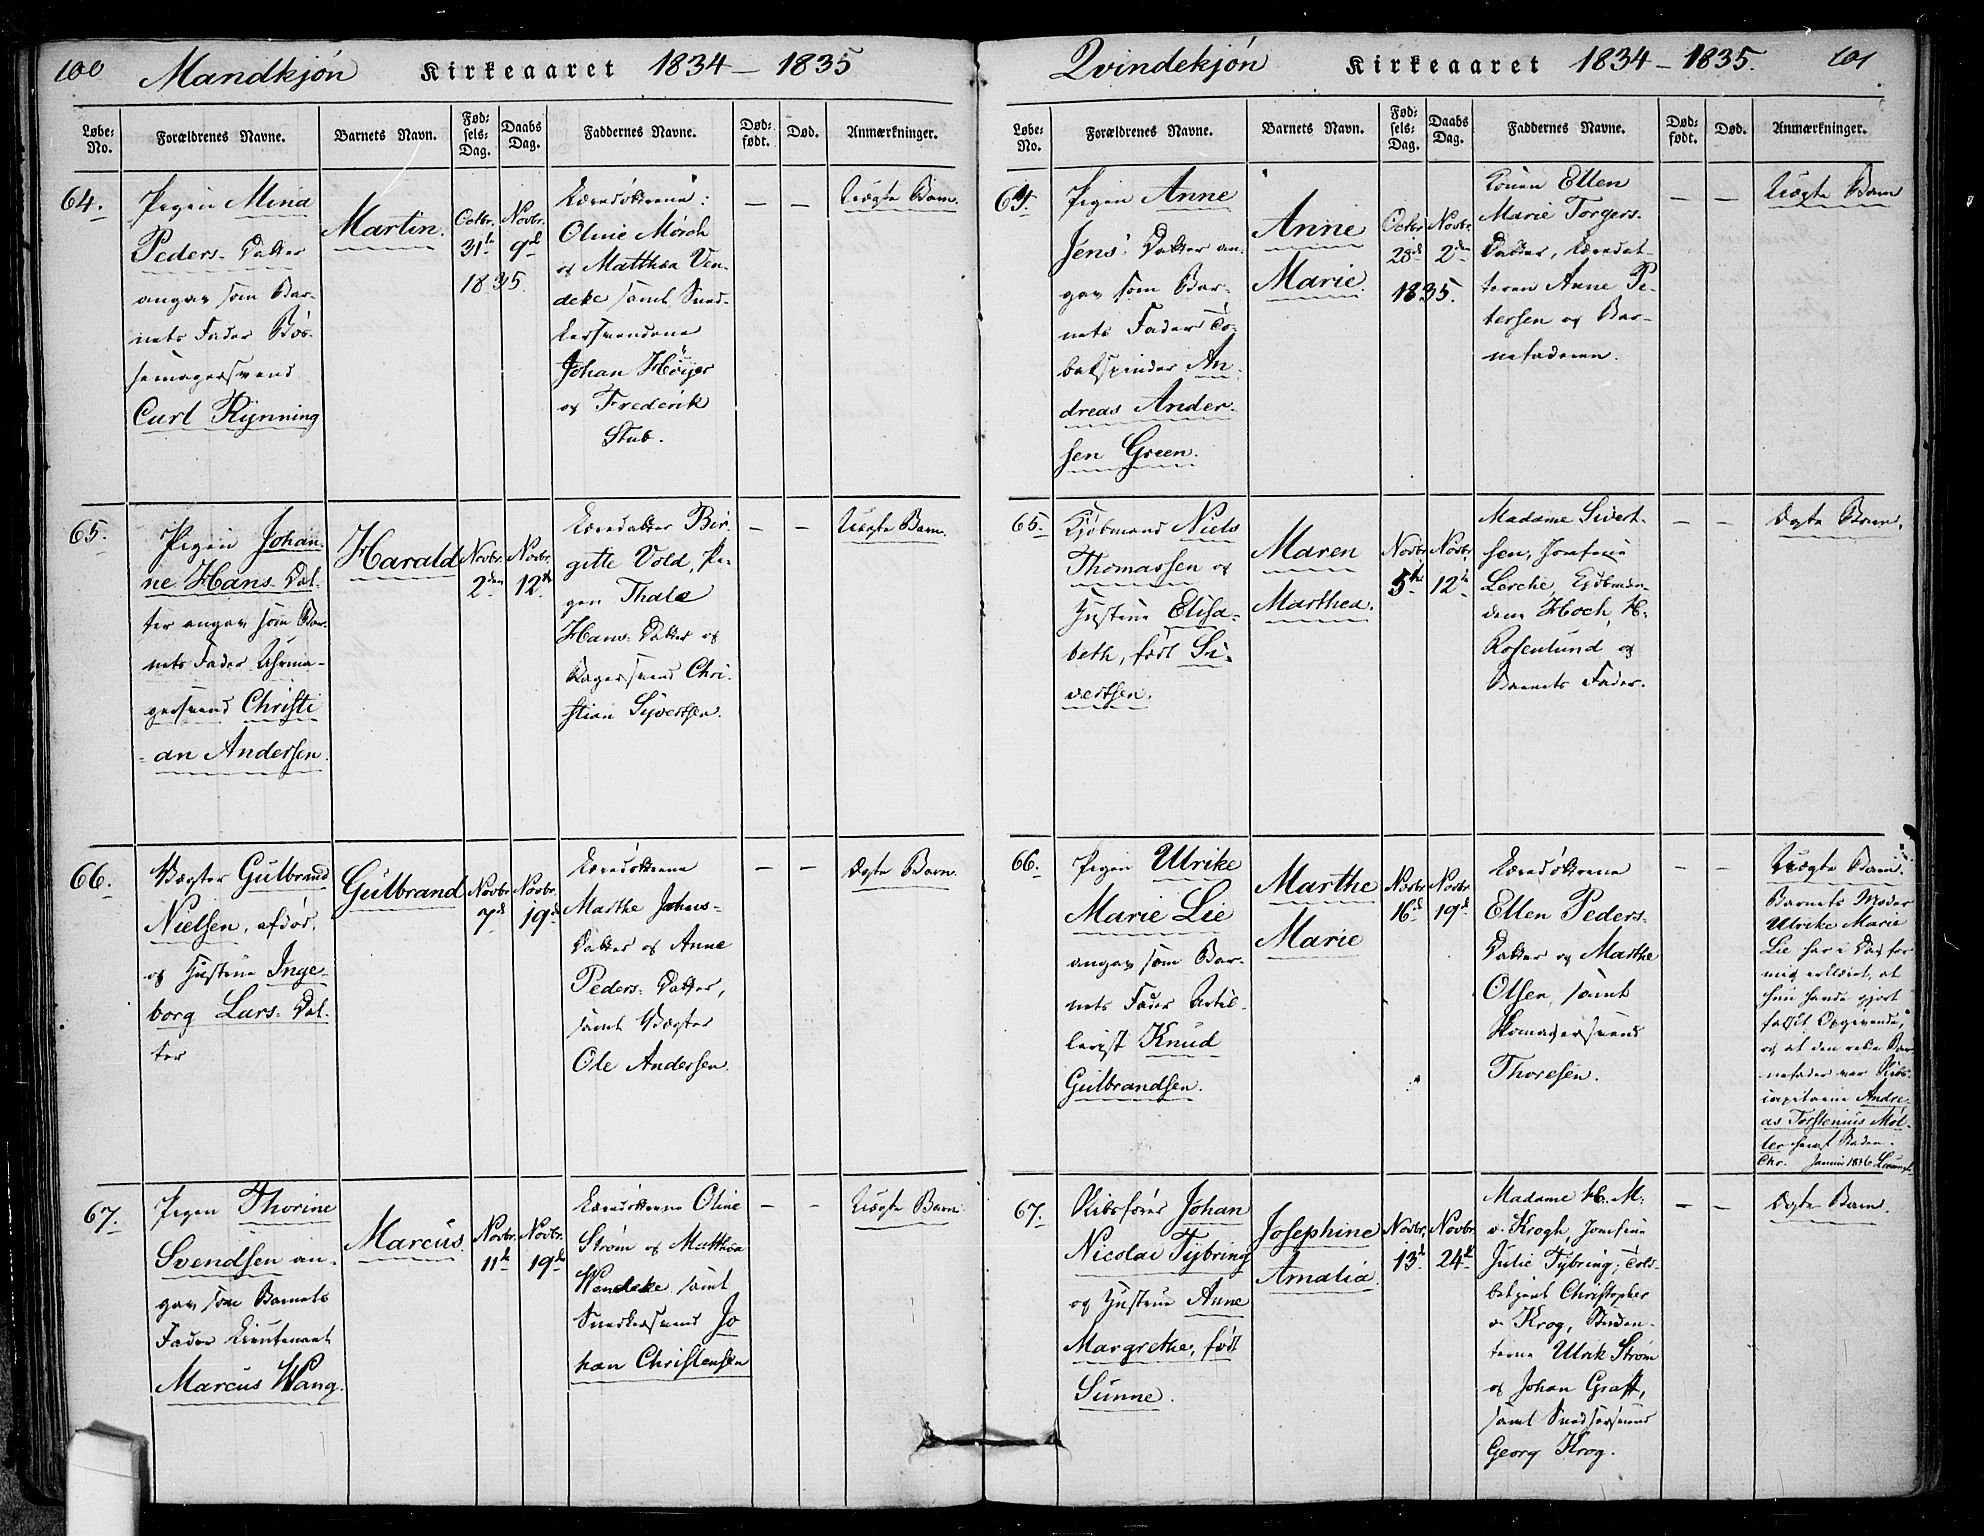 100 Mandkjön Kirkeaaret 1834 – 1835
Løbe-No. Forældrenes Navne. Barnets Navn. Fødsels-Dag. Daabs Dag. Faddernes Navne. Død-født. Død. Anmærkninger.
64. Pigen Mina
Peders Datter
angav som Bar-
nets Fader Bös-
semagersvend
Carl Rynning
Martin.
Octbr. 31te
Novbr. 9de
1835.
Læredöttrene:
Oline Mörch
og Matthea Ven-
deke samt Sned-
kersvendene
Johan Höyer
og Frederik
Stub.
— —
Uægte Barn.
65. Pigen Johan-
ne Hans Dat-
ter angav som Bar-
nets Fader Uhrma-
gersvend Christi
-an Andersen.
Harald
Novbr. 2den
Novbr. 12te
Læredatter Bir-
gitte Vold, Pi-
gen Thale
Hans Datter og
Bagersvend Chri-
stian Syvertsen.
— —
Uægte Barn.
66. Vægter Gulbrand
Nielsen, afdöd,
og Hustrue Inge-
borg Lars Dat-
ter
Gulbrand
Novbr. 7de
Novbr. 19de
Læredöttrene
Marthe Johns-
Datter og Anne
Peders Datter,
samt Vægter
Ole Andersen.
— —
Ægte Barn.
67. Pigen Thorine
Svendsen an-
gav som Barnets
Fader Lieutenant
Marcus Wang.
Marcus.
Novbr. 11te
Novbr. 19de
Læredöttrene Oline
Ström og Matthea
Wendeke samt
Snedkersvend Jo
han Christensen
— —
Uægte Barn.
Qvindekjön Kirkeaaret 1834 – 1835. 101
Løbe-No. Forældrenes Navne. Barnets Navn. Fødsels-Dag. Daabs Dag. Faddernes Navne. Død-født. Død. Anmærkninger.
64. Pigen Anne
Jens Datter an-
gav som Bar-
nets Fader To-
bakspinder An-
dreas Ander-
sen Green.
Anne
Marie.
Octbr 28de
Novbr. 2den
1835.
Konen Ellen
Marie Torgers-
Datter, Læredat-
teren Anne Pe-
tersen og Bar-
nefaderen.
— —
Uægte Barn
65. Kjöbmand Niels
Thomassen og
Hustrue Elisa-
beth, född Si-
vertsen.
Maren
Marthea.
Novbr 5te
Novbr. 12te
Madame Sivert-
sen, Jomfrue
Lerche, Kjöbmæn-
dene Hoch, H.
Rosenlund og
Barnets Fader.
— —
Ægte Barn.
66. Pigen Ulrike
Marie Lie
angav som Bar-
nets Fader Artil-
lerist Knud
Gulbrandsen.
Marthe
Marie
Novbr 16de
Novbr. 19de
Læredöttrene
Ellen Peders-
Datter og Marthe
Olsen, samt
Skomagersvend
Thoresen.
— —
Uægte Barn.
Barnets Moder
Ulrike Marie
Lie har i Dag for
mig erklæret, at
hun havde gjort
falsk Opgivende,
og at den rette Bar
nefader var Skibs-
capitaine Andre-
as Torstenius Möl-
ler
Chr. Januar 1836
67. Skibsförer Johan
Nicolai Tybring
og Hustrue Anne
Margrethe, född
Sunne.
Josephine
Amalia.
Novbr. 13de
Novbr. 24de
Madame H. M.
v. Krogh, Jomfrue
Julie Tybring, Told-
betjent Christopher
v. Krog, Studen-
terne Ulrik Ström
og Johan Graff,
samt Snedkersvend
Georg Krog.
— —
Ægte Barn.